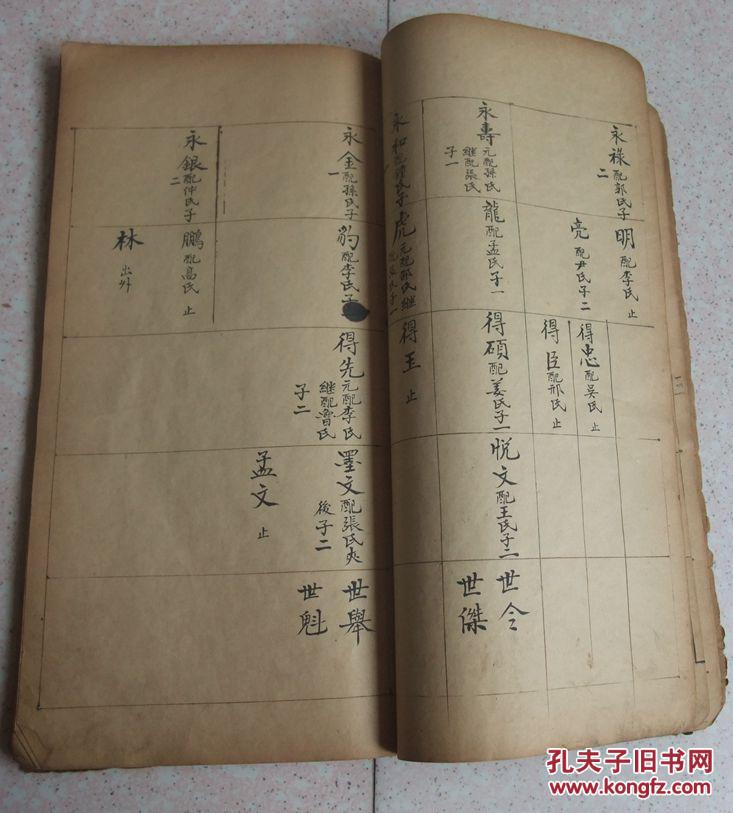 永祿配郭氏子二
永壽元配孫氏繼配張氏子一
永和
明配李氏止
亮配尹氏子二
龍配孟氏子一
虎元配邢氏繼
得忠配吳氏止
得臣配邢氏止
得碩配姜氏子一
得玉止
悅文配王氏子二
世令
世傑
永金配孫氏子一
永銀配仲氏子二
豹配李氏子
鵬配高氏止
林出外
得先元配李氏繼配魯氏子二
墨文配張氏
後子二
孟文止
世舉
世魁
孔夫子旧书网
www.kongfz.com